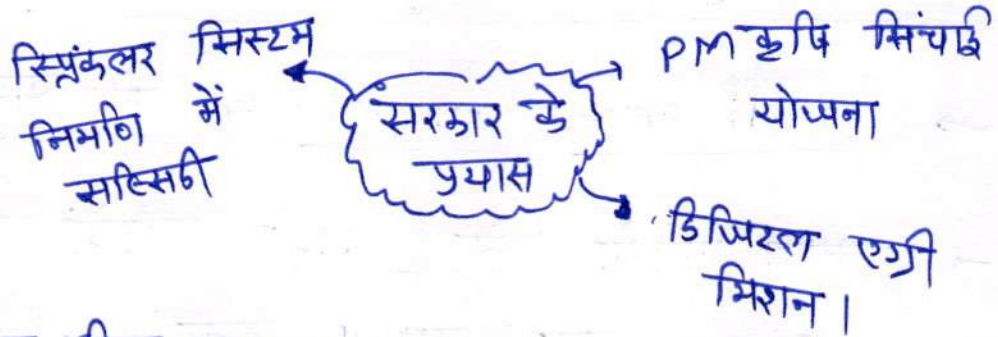 स्प्रिंकलर सिस्टम
निर्माण में
सब्सिडी
सरकार के
प्रयास
PM कृषि सिंचाई
योजना
डिजिटल एग्री
मिशन।